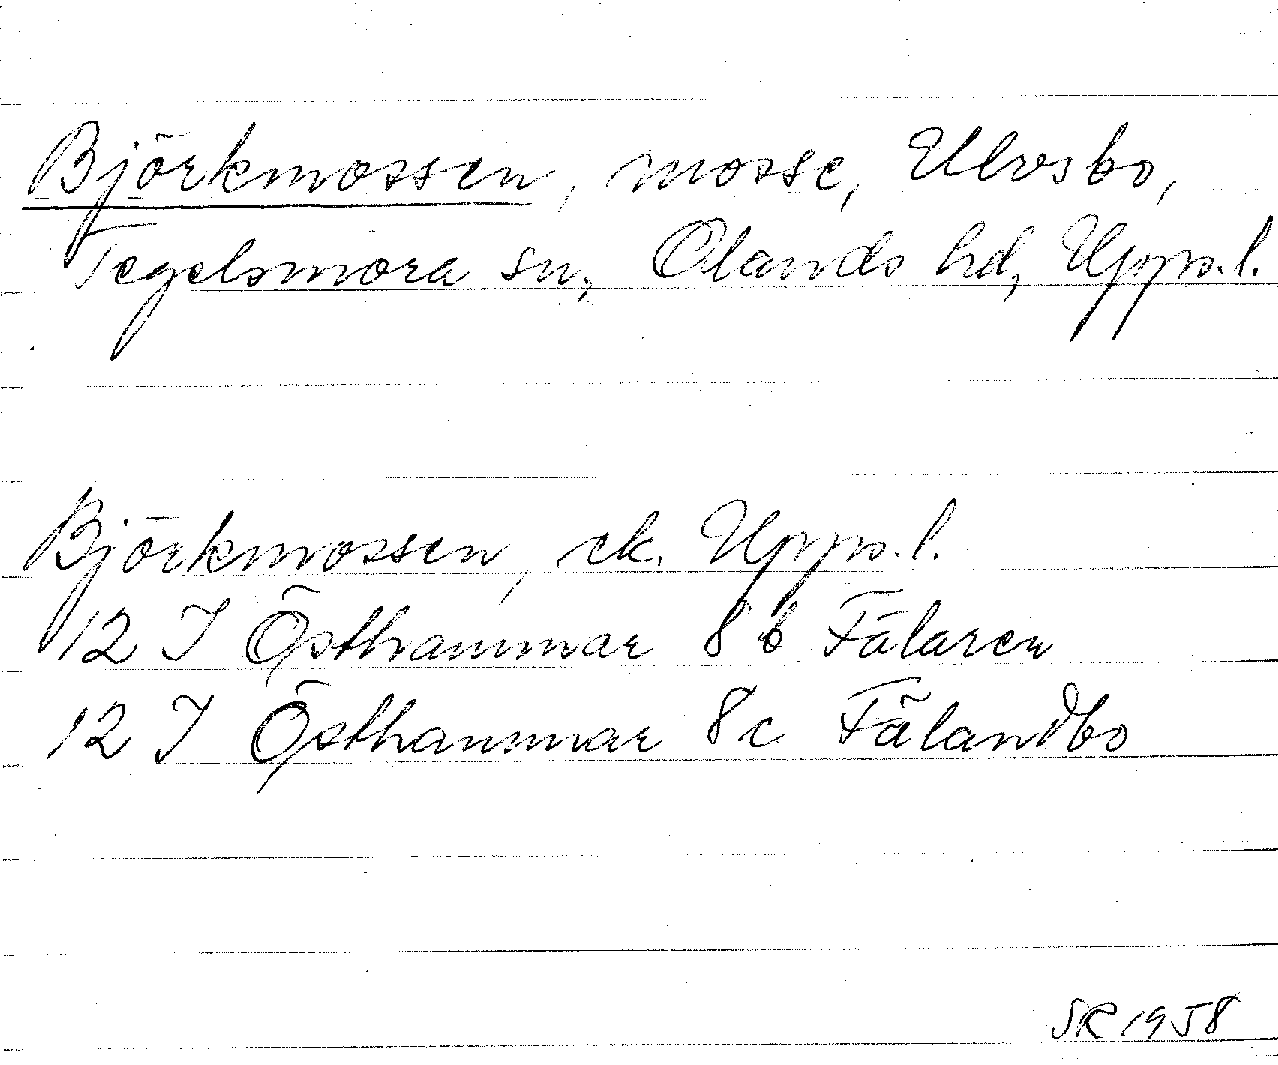 Björkmossen, mosse, Ulvsbo,
Tegelsmora sn, Olands hd, Upps.l.
Björkmossen, ek. Upps.l.
12 I Östhammar 8 b Fälaren
12 I Östhammar 8 c Fälandbo
SR 1958